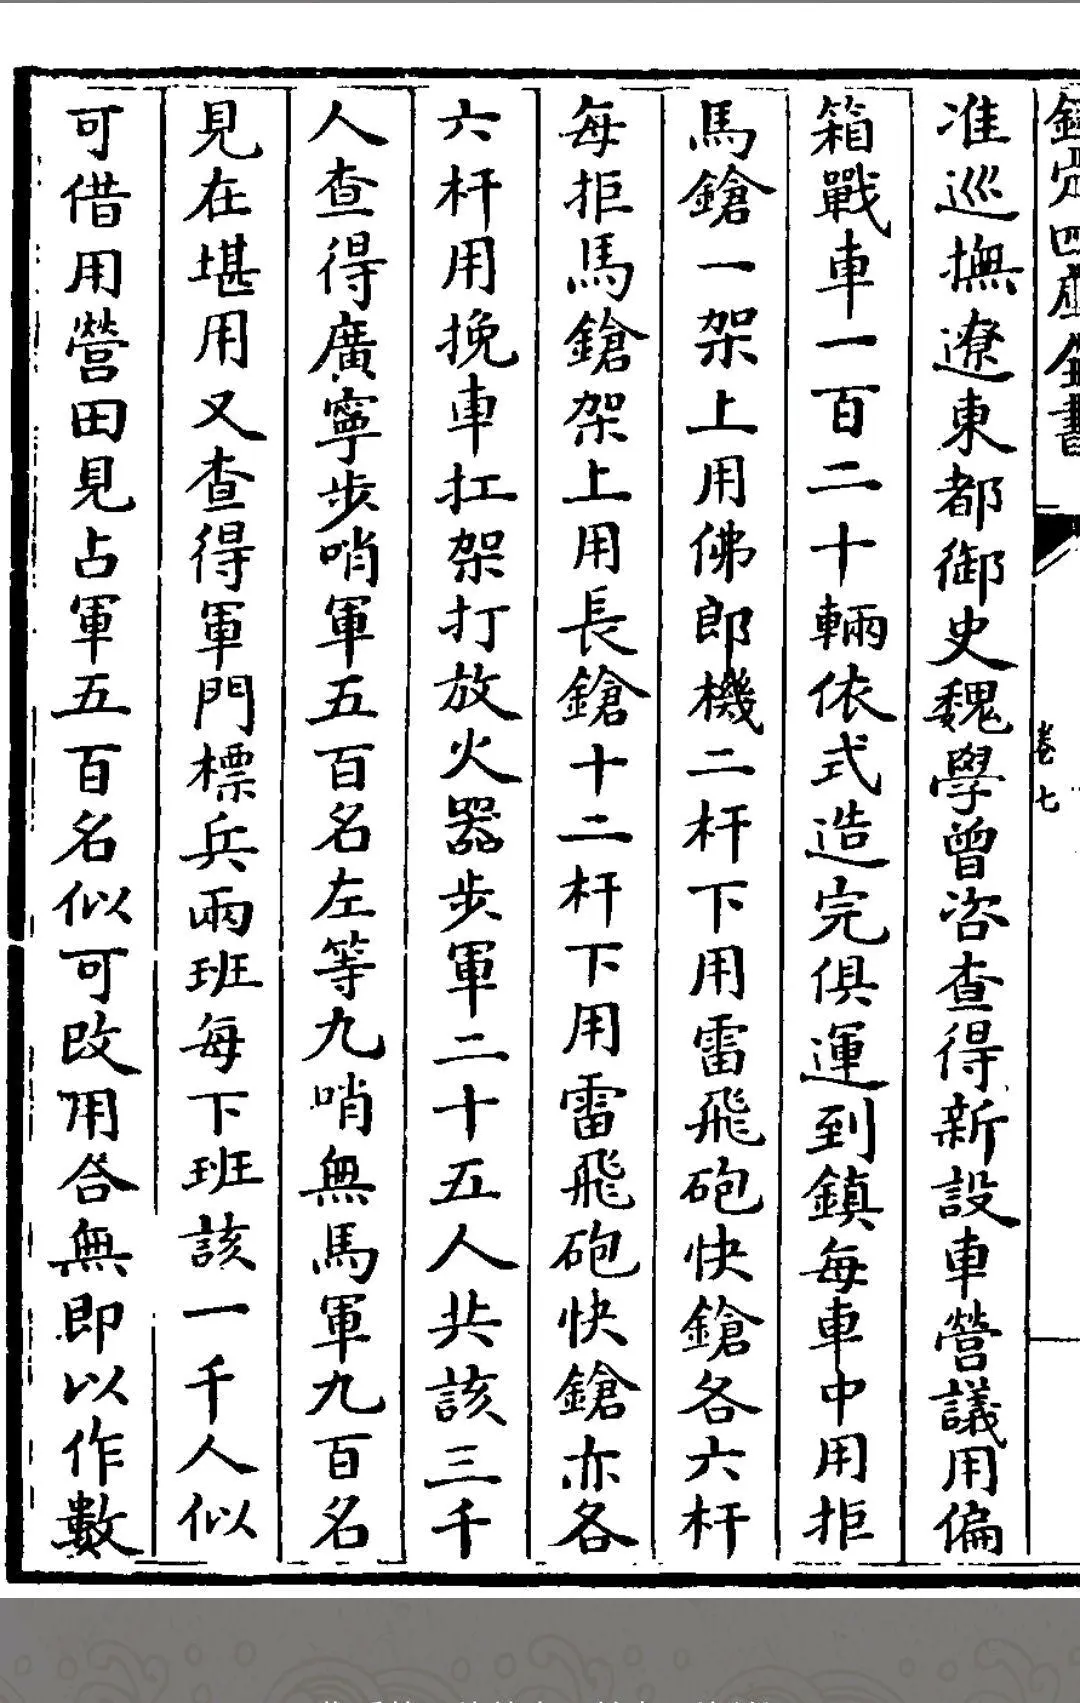 欽定四庫全書
卷七
准巡撫遼東都御史魏學曾咨查得新設車營議用偏
箱戰車一百二十輛依式造完俱運到鎮每車中用拒
馬鎗一架上用佛郎機二杆下用雷飛砲快鎗各六杆
每拒馬鎗架上用長鎗十二杆下用雷飛砲快鎗亦各
六杆用挽車扛架打放火器步軍二十五人共該三千
人查得廣寧步哨軍五百名左等九哨無馬軍九百名
見在堪用又查得軍門標兵兩班每下班該一千人似
可借用營田見占軍五百名似可改用合無即以作數